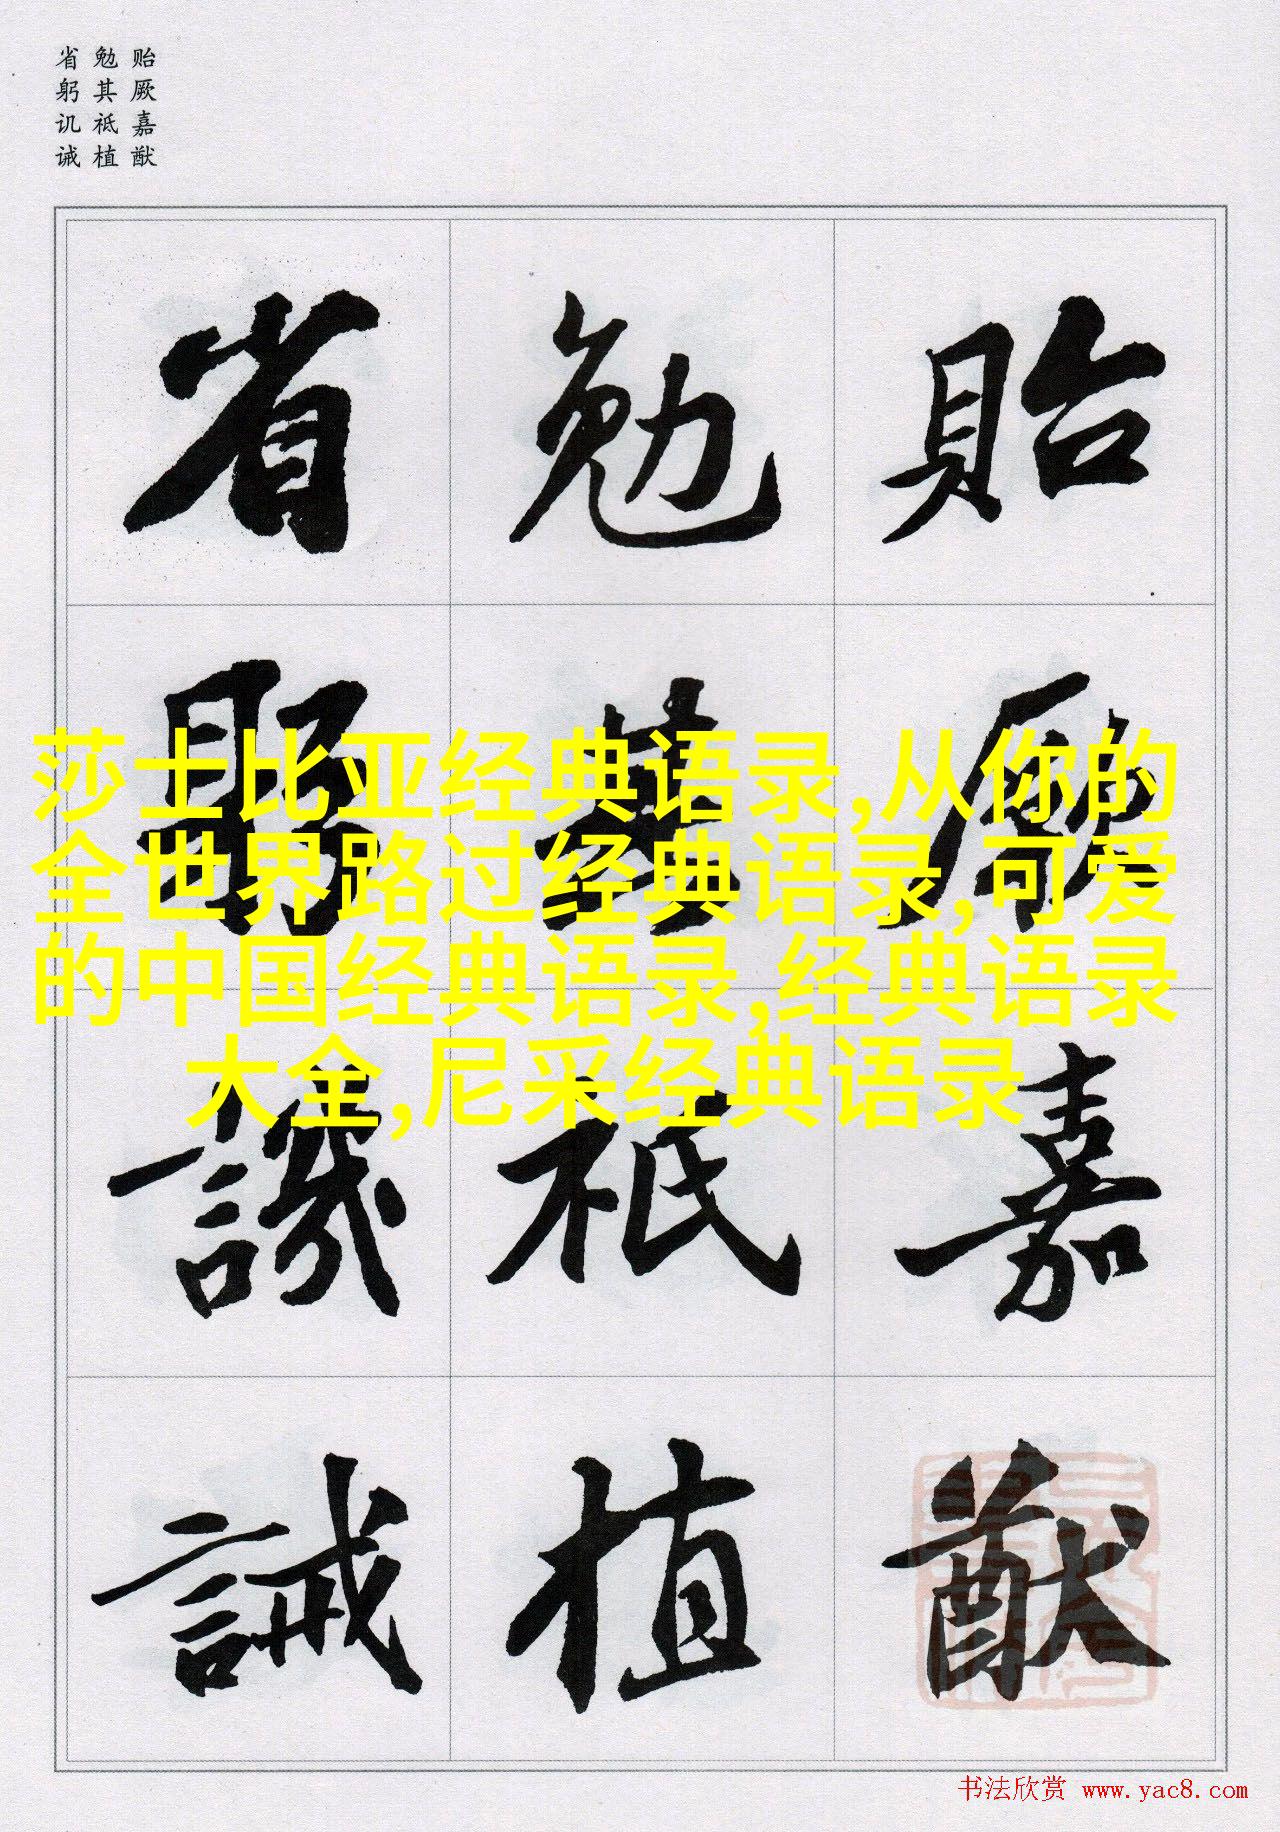 贻厥嘉猷
勉其祗植
省躬讥诫
貽厥嘉猷
勉其祗植
省躬譏誡
莎士比亚经典语录,从你的
全世界路过经典语录,可爱
的中国经典语录,经典语录
大全,尼采经典语录
书法欣赏 www.yac8.com